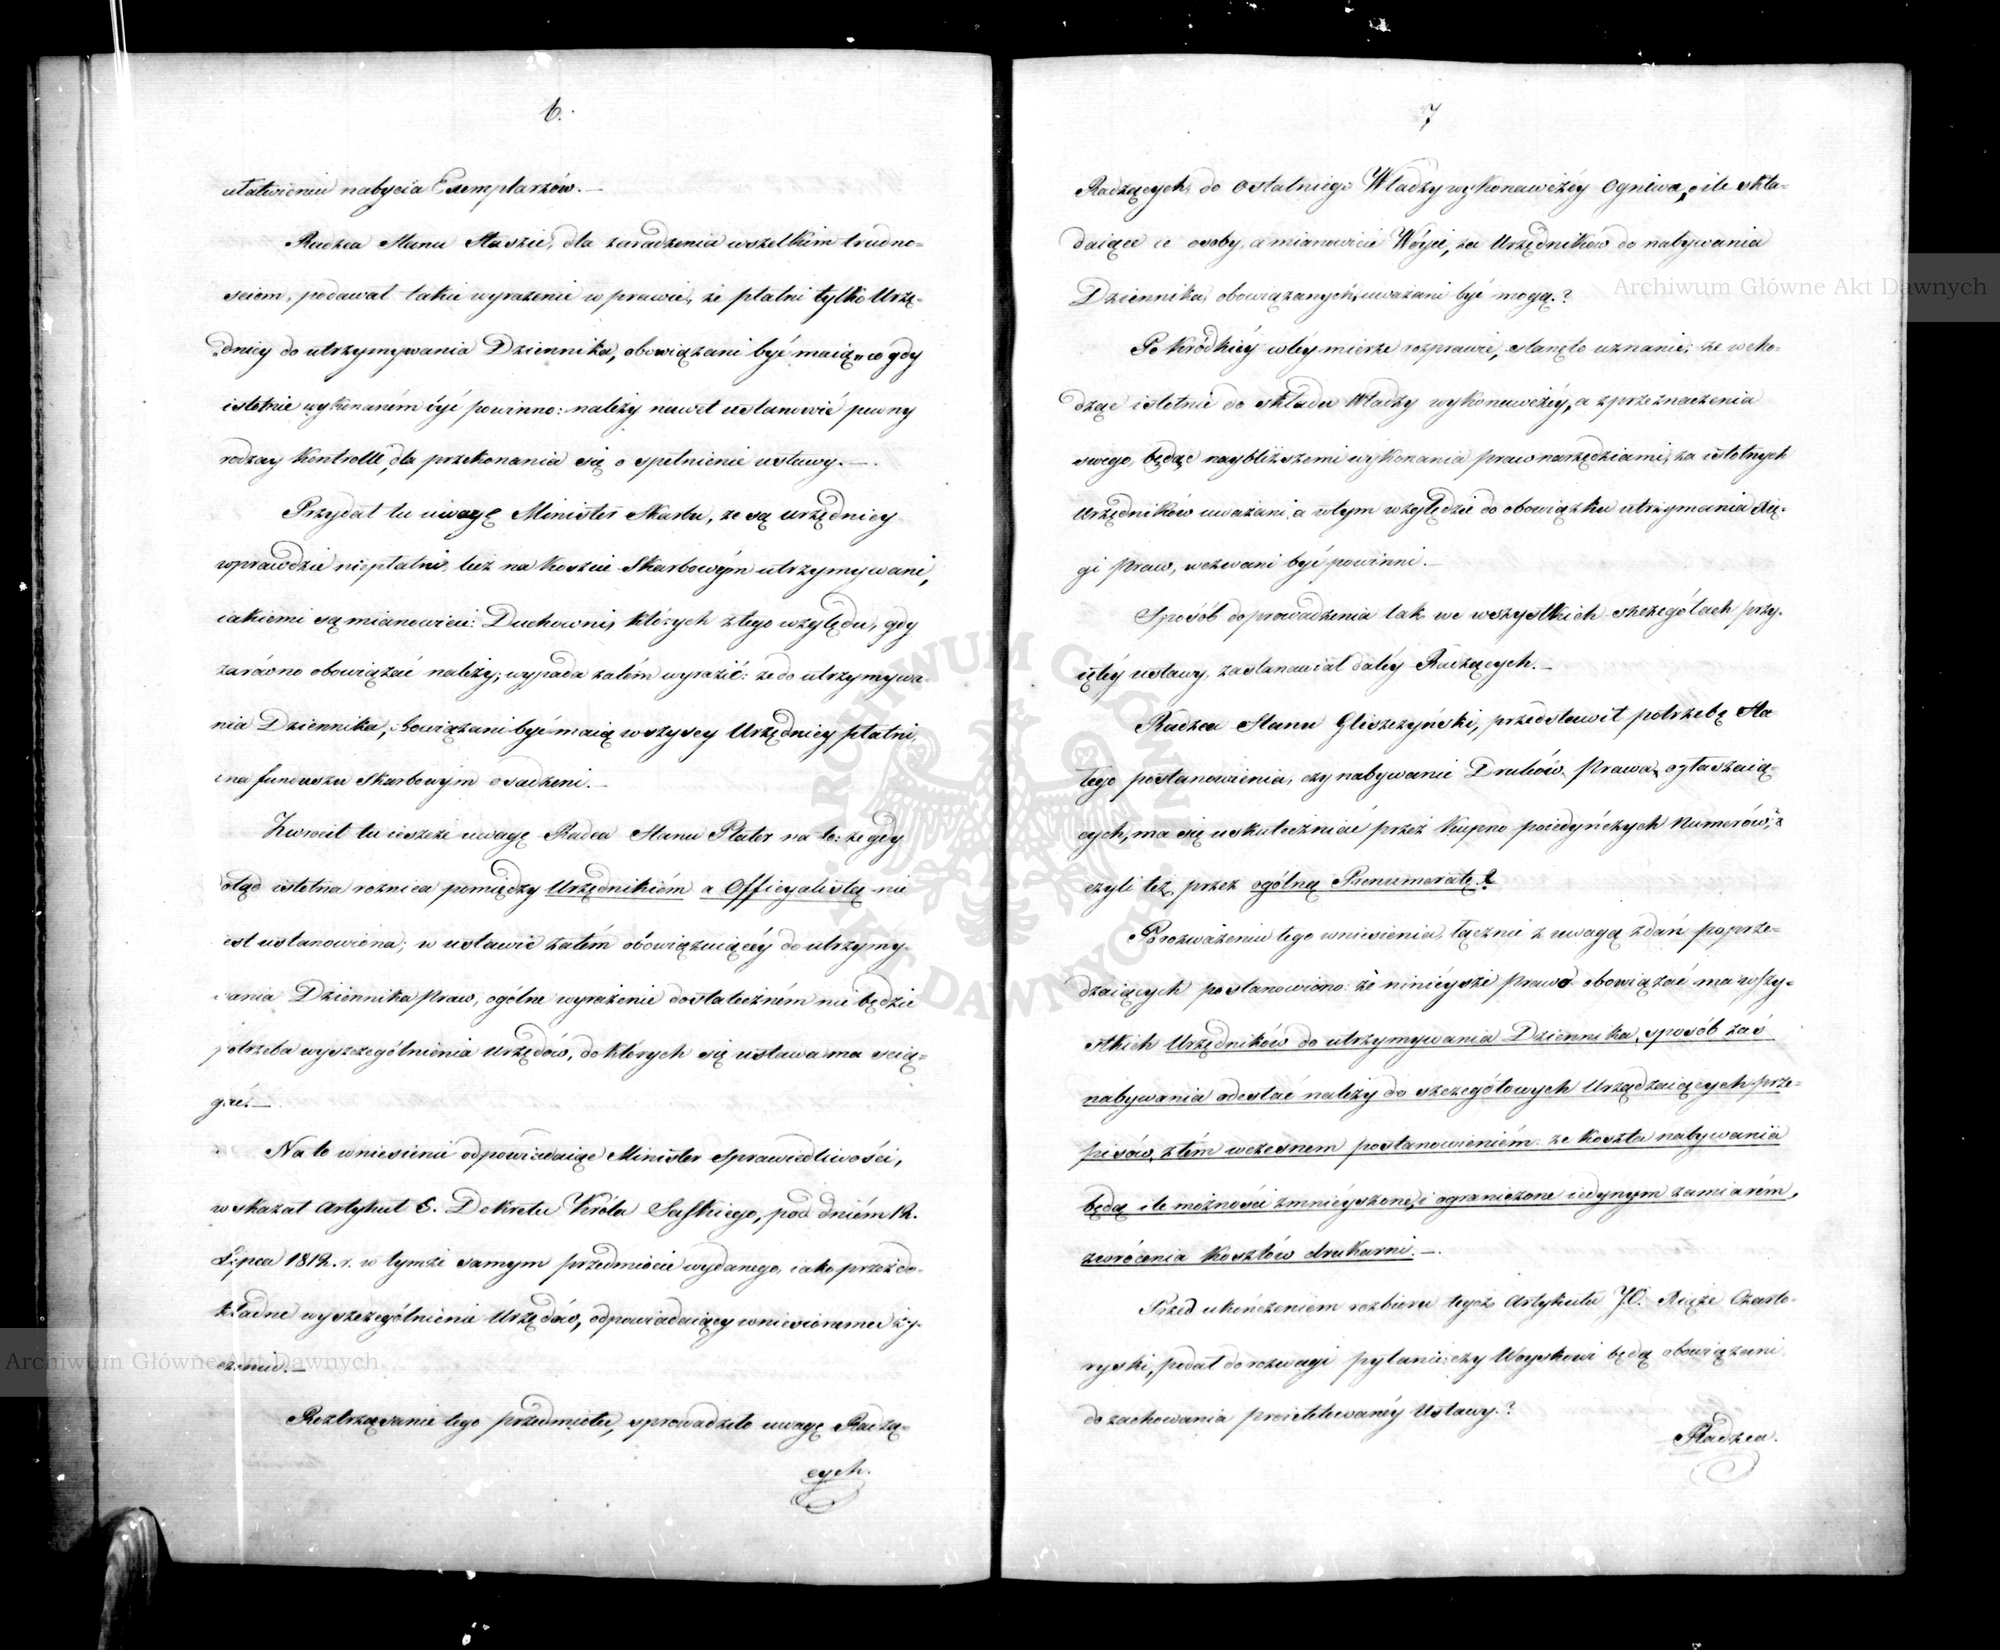 6.
ułatwieniu nabycia Exemplarzów.—
Radzca Stanu Staszic, dla zaradzenia wszelkim trudno=
sciom, podawał takie wyrażenie w prawie, że płatni tylko Urzę=
dnicy do utrzymywania Dziennika, obowiązani być maią, co gdy
istotnie wykonaném być powinno: należy nawet ustanowić pewny
rodzay Kontrolli, dla przekonania się o spełnienie ustawy.—.
Przydał tu uwagę Minister Skarbu, ze są urzędnicy
wprawdzie niepłatni, lecz na koszcie Skarbowym utrzymywani,
iakiemi są mianowicie: Duchowni, których z tego względu, gdy
zarówno obowiązać należy; wypada zatém wyrazić: że do utrzymywa=
nia Dziennika, obowiązani być maią wszyscy Urzędnicy płatni,
i na funduszu Skarbowym osadzeni.—
Zwrócił tu ieszcze uwagę Radca Stanu Plater na to: ze gdy
dotąd istotna roznica pomiędzy Urzędnikiém a Officyalistą nie
iest ustanowiona; w ustawie zatém obowiązuiącéy do utrzymy=
wania Dziennika Praw, ogólne wyrażenie dostateczném nie będzie
potrzeba wyszczególnienia urzędów, do których się ustawa ma scią=
gać.—
Na to wniesienie odpowiadaiąc Minister Sprawiedliwości,
wskazał Artykuł 5. Dekretu Króla Saskiego, pod dniém 12.
Lipca 1812. r. w tymże samym przedmiocie wydanego, iako przez do=
kładne wyszczególnienie Urzędów, odpowiadaiący wniesionemu ży=
czeniu.—
Roztrząsanie tego przedmiotu, sprowadziło uwagę Radzą=
cych.
7
Radzących, do ostatniego Władzy wykonawczéy Ogniwa, o ile skła=
daiące ie osoby, a mianowicie Wóyci, za Urzędników do nabywania
Dziennika, obowiązanych, uważani być mogą.?
Po krótkiéy w téy mierze rozprawie, stanęło uznanie: że wcho=
dząc istotnie do składu Władzy wykonawczéy, a z przeznaczenia
swego, będąc naybliższemi wykonania praw narzędziami, za istotnych
Urzędników uważani, a w tym względzie do obowiązku utrzymania Xię=
gi Praw, wezwani być powinni.—
Sposób doprowadzenia tak we wszystkich szczegółach przy=
iętéy ustawy, zastanawiał daléy Radzących.—
Radzca Stanu Gliszczyński, przedstawił potrzebę sta
łego postanowienia, czy nabywanie Druków, Prawa ogłaszaią=
cych, ma się uskuteczniać przez kupno poiedyńczych Numerów,?
czyli też przez ogólną Prenumeratę.?
Po rozważeniu tego wniesienia, łącznie z uwagą zdań poprze=
dzaiących postanowiono: że ninieysze prawo obowiązać ma wszy=
stkich Urzędników do utrzymywania Dziennika, sposób zaś
nabywania odesłać należy do szczegółowych Urządzaiących prze=
pisów, z tém wczesnem postanowieniém: że koszta nabywania
będą ile możności zmnieyszone, i ograniczone iedynym zamiarém,
zwrócenia kosztów drukarni.—.
Przed ukończeniem rozbioru tegoż Artykułu JO. Xiąże Czarto=
ryski, podał do rozwagi pytanie: czy Woyskowi będą obowiązani
do zachowania proiektowanéy Ustawy.?
Radzca.
Archiwum Główne Akt Dawnych
Archiwum Główne Akt Dawnych
ARCHIWUM GŁÓWNE AKT DAWNYCH